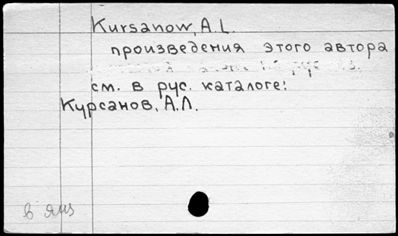 Kursanow, A. L.
произведения этого автора
см. в рус. каталоге:
Курсанов, А.Л.
в